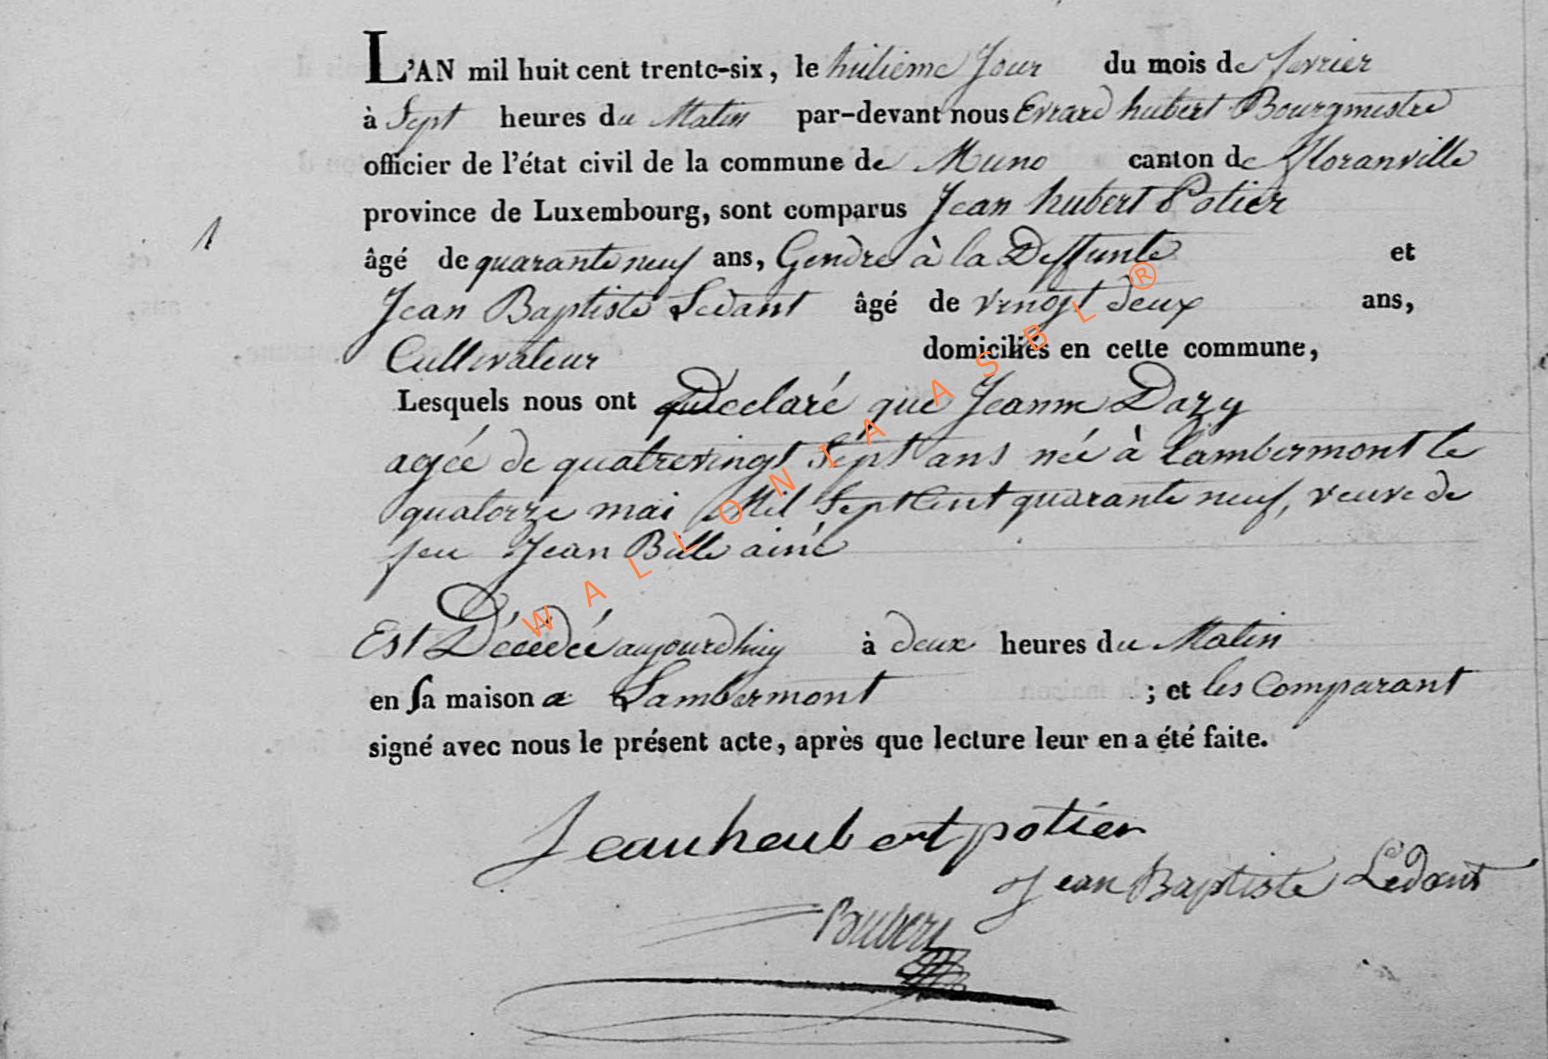 L'AN mil huit cent trente-six, le huitieme Jour du mois de fevrier
à Sept heures du Matin par-devant nous Evrard hubert Bourgmestre
officier de l'état civil de la commune de Muno canton de floranville
province de Luxembourg, sont comparus Jean hubert Potier
1
âgé de quarante neuf ans, Gendre à la Deffunte et
Jean Baptiste Ledant âgé de vingt deux ans,
Cultivateur domiciliés en cette commune,
Lesquels nous ont Declaré que Jeanne Dazy
agée de quatrevingt Sept ans née à Lambermont le
quatorze mai Mil Sept Cent quarante neuf, veuve de
feu Jean Bille ainé
Est Décédée aujourdhuy à deux heures du Matin
en sa maison a Lambermont ; et les Comparant
signé avec nous le présent acte, après que lecture leur en a été faite.
Jean heubert potier
Jean Baptiste Ledant
WALLONIA ASBL ®